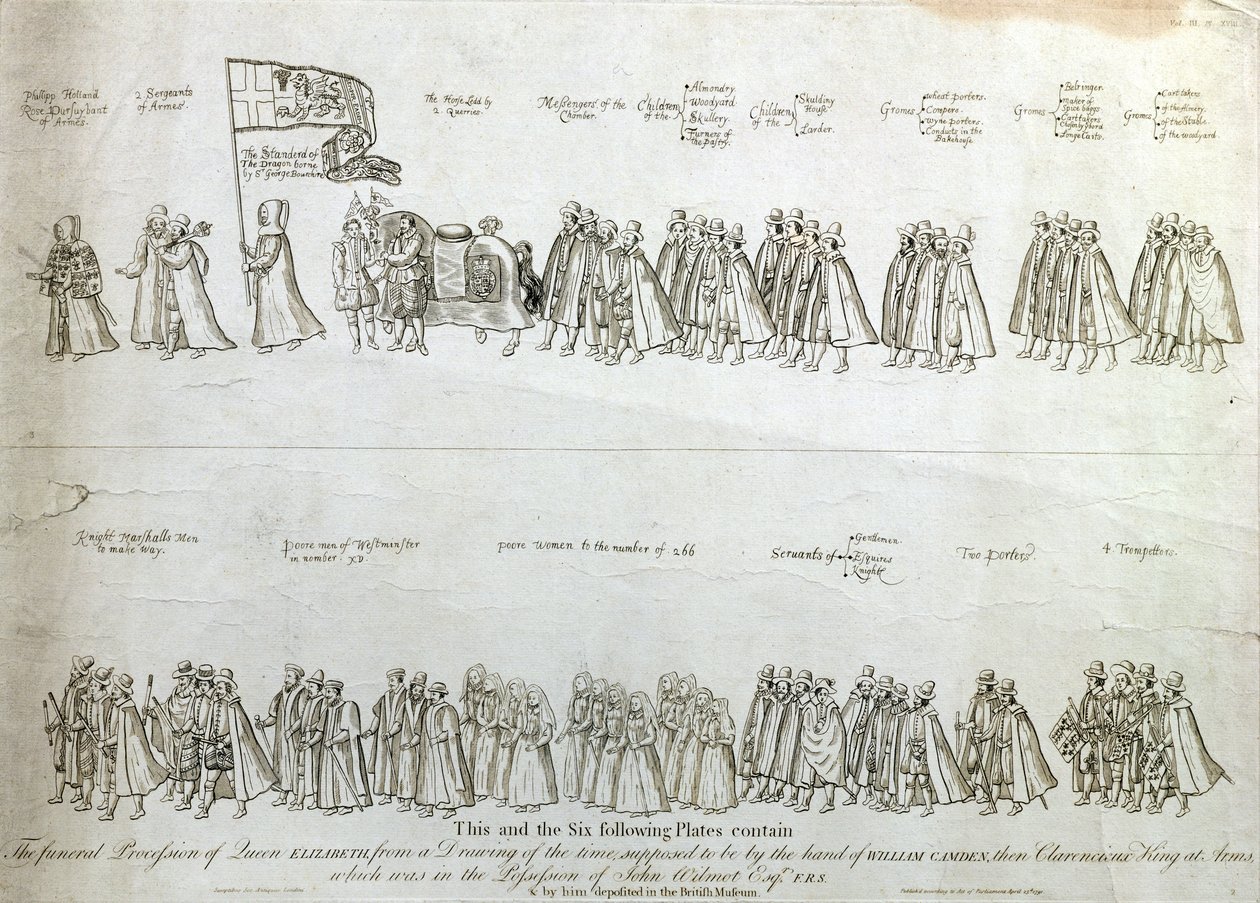 Vol. III. Pl. XVIII.
Phillipp Holland
Rose Pursuyvant
of Armes.
2 Sergeants
of Armes.
The Standerd of
The Dragon borne
by Sr George Bourchire
The Horse Ledd by
2. Querries.
Messengers of the
Chamber.
Children
of the
Almondry.
Woodyard.
Skullery.
Furners of
the Pastry.
Children
of the
Skulding
House
Larder.
Gromes
wheat porters.
Compere.
wyne porters.
Conducts in the
Bakehouse
Gromes
Belringer.
maker of
Spice baggs
Carttakers
Longe Carts.
Gromes
Cart takers.
of the Almery.
of the Stable.
of the woodyard.
3
Knight Marshalls Men
to make way.
Poore men of Westminster
in nomber. XV.
Poore Women to the number of 266
Servants of
Gentlemen.
Esquires
Knights
Two Porters.
4. Trompettors.
This and the Six following Plates contain
The funeral Procession of Queen ELIZABETH, from a Drawing of the time, supposed to be by the hand of WILLIAM CAMDEN, then Clarencieux King at Arms
which was in the Possession of John Wilmot Esqr. F.R.S.
& by him deposited in the British Museum.
Sumptibus Soc. Antiquar. Londini
Publish'd according to Act of Parliament April 23d 1791.
2